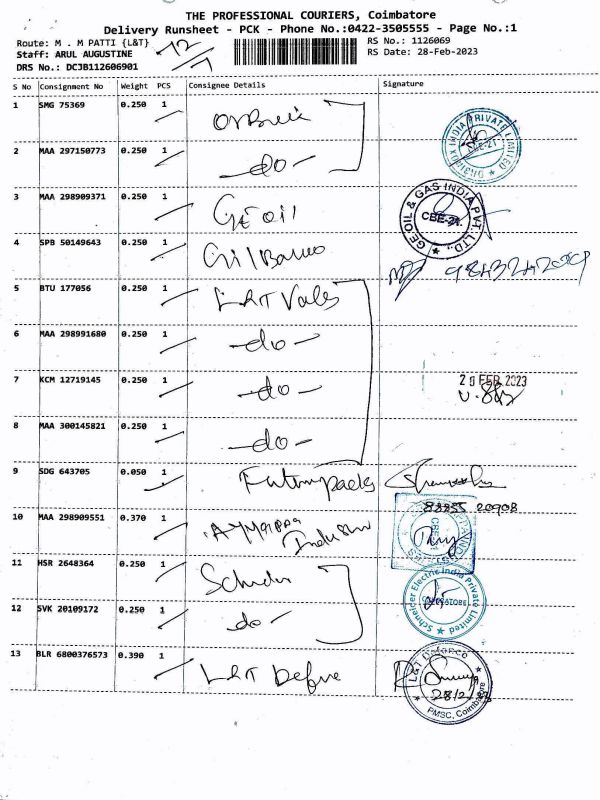 THE PROFESSIONAL COURIERS, Coimbatore
Delivery Runsheet - PCK - Phone No.:0422-3505555 - Page No.:1
Route: M . M PATTI {L&T}
RS No.: 1126069
Staff: ARUL AUGUSTINE
RS Date: 28-Feb-2023
DRS No.: DCJB112606901
S No Consignment No Weight PCS Consignee Details Signature
1 SMG 75369 0.250 1
2 MAA 297150773 0.250 1 -do-
INDIA PRIVATE LIMITED
CBE-21
3 MAA 298909371 0.250 1 GEoil
GEOIL & GAS INDIA PVT. LTD.,
CBE-21.
4 SPB 50149643 0.250 1 Gilbarco
5 BTU 177056 0.250 1 L&T Valves
6 MAA 298991680 0.250 1 -do-
7 KCM 12719145 0.250 1 -do-
28 FEB 2023
8 MAA 300145821 0.250 1 -do-
9 SDG 643705 0.050 1
10 MAA 298909551 0.370 1
11 HSR 2648364 0.250 1
Schneider Electric India Private Limited
12 SVK 20109172 0.250 1 -do-
13 BLR 6800376573 0.390 1 L&T Defence
L&T Defence
28/2/23
PMSC, Coimbatore